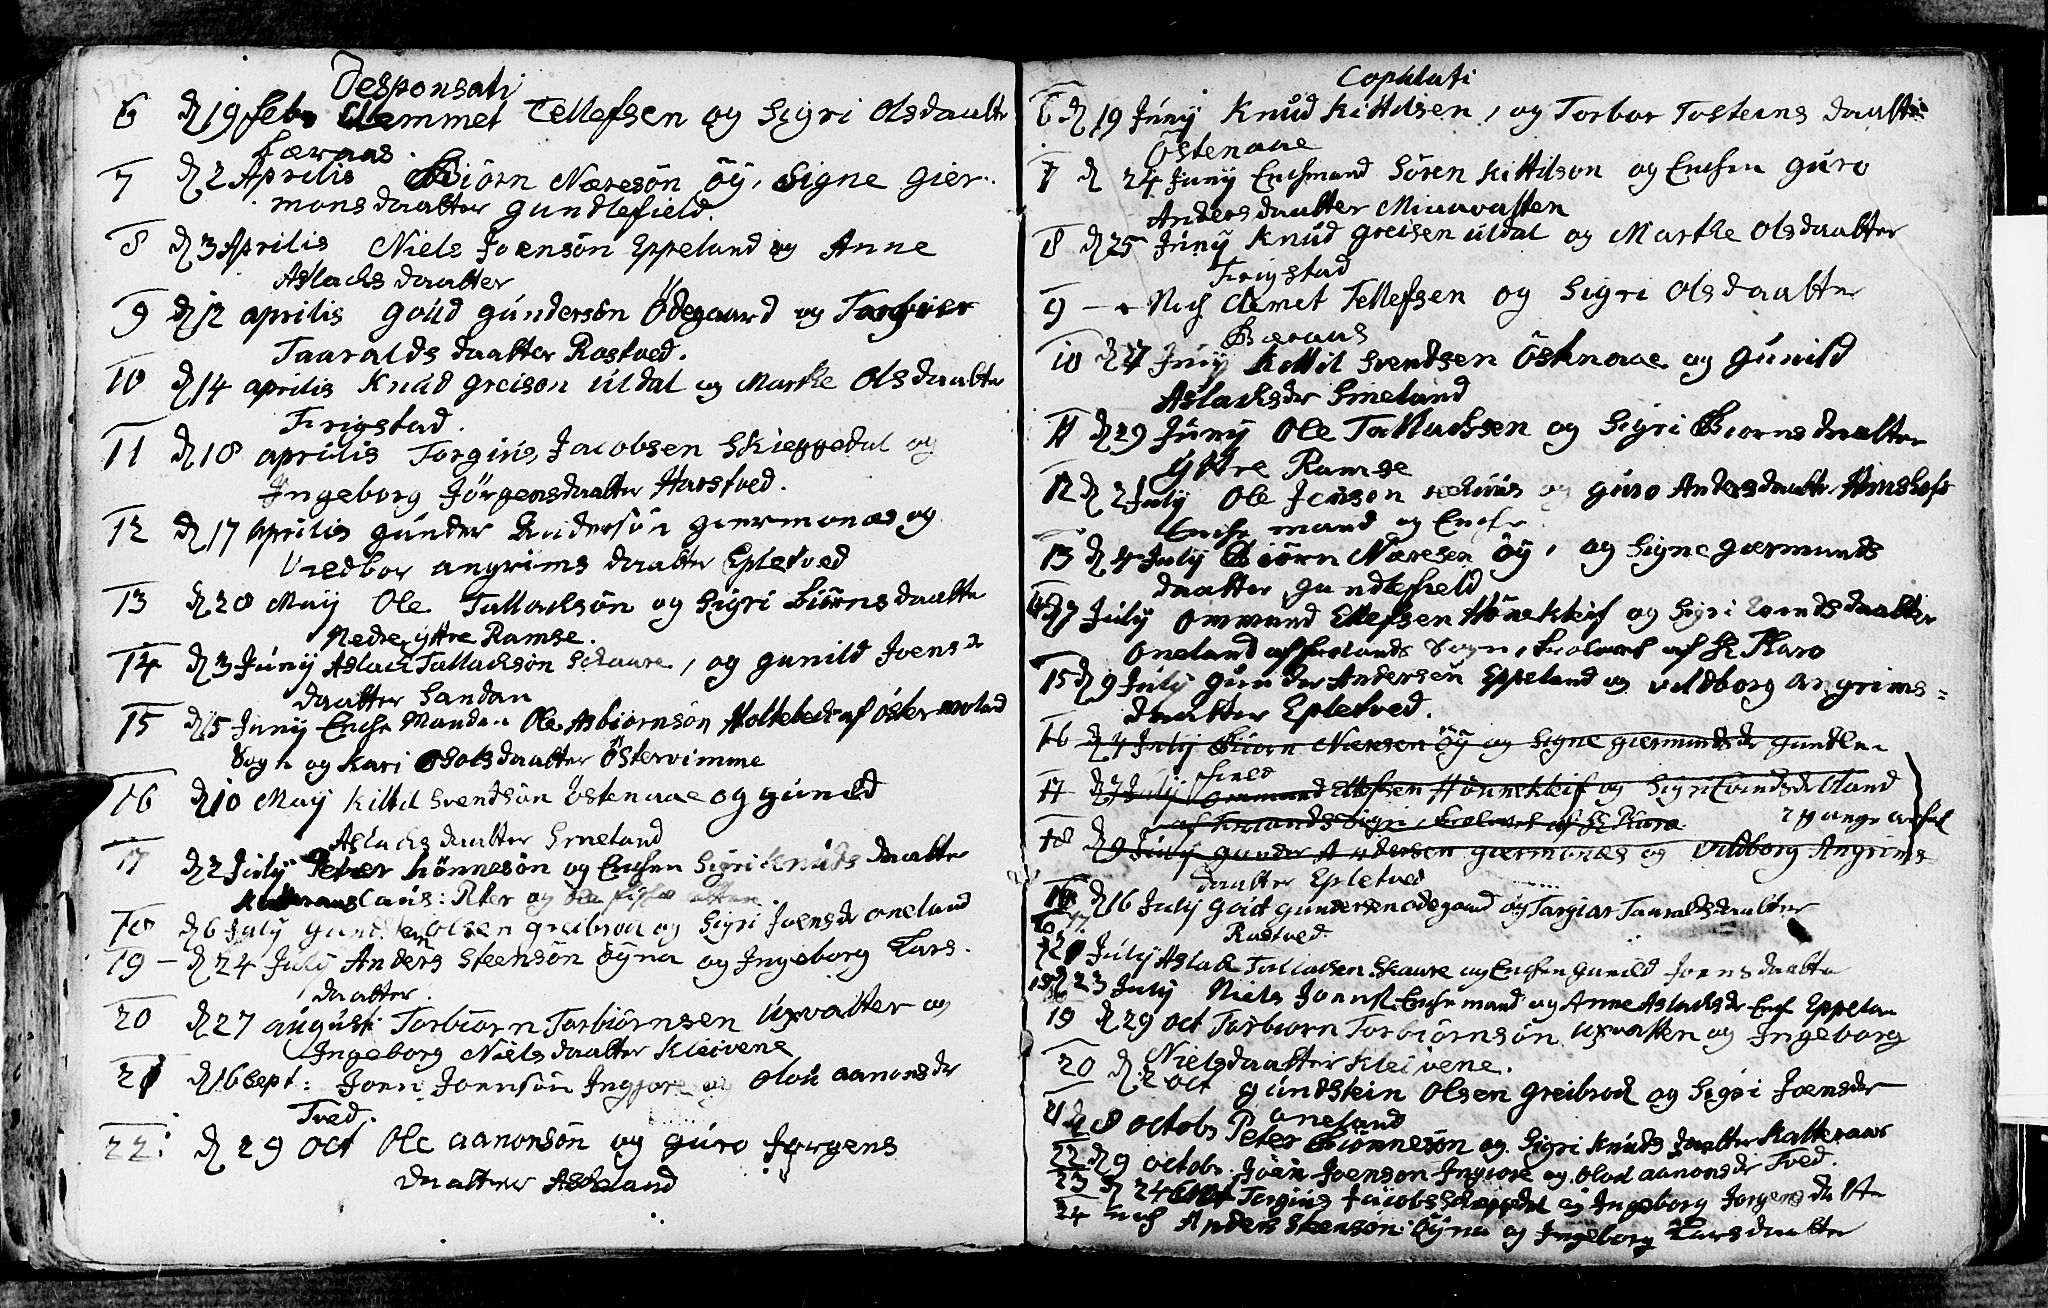 Desponsati
6 d 19 febr Clemmet Tellefsen og Sigri Olsdaatter
Færaas.
7 d 2 Aprilis Biörn Næresön Öÿ, Signe Gier-
monsdaatter Gundlefield.
8 d 3 Aprilis Niels Joensön Eppeland og Anne
Aslachsdaatter
9 d 12 aprilis Goüd Gündersön Ödegaard og Targier
Taaraldsdaatter Rostved.
10 d 14 aprilis Knüd Greison Uldal og Marthe Olsdaatter
Frigstad.
11 d 18 aprilis Torgius Jacobsen Skieggedal og
Ingeborg Jörgensdaatter Harstved.
12 d 17 aprilis Günder Andersön Giermonæs og
Vredbor angrims daatter Epletved
13 d 28 Maÿ Ole Tallachsön og Sigri Biörnsdaatter
Nedre ÿttre Ramse.
14 d 3 Jünÿ Aslach Tallachsön Schaare, og Gunild Joens
daatter Sandan
15 d 5 Junÿ Enchemanden Ole Asbiörnsön Holtebech af Östermoland
Sogn og Kari Osolsdaatter Östervimme
16 d 10 Maÿ Kittil Svendsön Östenaae og Günild
Aslachsdaatter Smeland
17 d 2 Julÿ Peter Lönnesön og Enchen Sigri Knüdsdaatter
Caüs: Peter og
18 d 6 Julÿ Gundsten Olsen Greibrod og Sigri Joensdr Oneland
19 - d 24 Julÿ Anders Steensön Öÿna og Ingeborg Lars-
daatter.
20 d 27 august: Torbiörn Torbiörnsen Uxvatten og
Ingeborg Nielsdaatter Kleivene
21 d 16 Sept: Joen Joensön Ingiore og Olou Aanonsdr
Tved.
22: d 29 oct Ole Aanonsön og Guro Jorgens
daatter Askeland
Copulati
6 d 19 Jünÿ Knüd Kittilsen, og Torbor Tosteinsdaatter
Östenaae
7 d 24 Junÿ Enchmand Sören Kittilson og Enchen Guro
Andersdaatter Maavatten
8 d 25 Jünÿ Knüd Greisen Uldal og Marthe Olsdaatter
Frigstad
9 - Clemet Tellefsen og Sigri Olsdaatter
Færaas
10 d 27 Jünÿ Kittil Svendsen Östenaae og Gunild
Aslachsdr Smeland
11 d 29 Jünÿ Ole Tallachsen og Sigri Biornsdaatter
ÿttre Ramse
12 d 2 Julÿ Ole Jenson og Guro Andersdaatter
Enchemand og Enche
13 d 4 Julÿ Biörn Næresen Öÿ, og Signe Giermunds
daatter Gundlefield
14 d 7 Julÿ Ommund Ellefsen Hönekleif og Sigri Evindsdaatter
Oneland af Sogn, Trolovet af Hr Karo
15 d 9 Julÿ Gunder Andersön Eppeland og Vildborg angrims=
daatter Epletved.
16 d 4 Julÿ Biörn Næresen Öÿ og Signe Giermundsdr Gundle-
field
17 d 7 Julÿ Ommund Ellefsen Hönnekleif og Sigri Evindsdr Oland
Trolovet af Hr Karo 2 gange anført
18 d 9 Julÿ Gunder Andersen Giermonæs og Vildborg Angrims
daatter Epletved
16 d 16 Julÿ Goüt Gundersen Odegaard og Targier Taaraldsdaatter
Rostved.
17 d 21 Julÿ Aslak Tallachsen Skaare og Enchen Gunild Joensdaatter
18 d 23 Julÿ Niels Joens Enchemand og Anne Aslachsdr Ench Eppelan
19 d 29 oct Torbiorn Torbiörnsön Uxvatten og Ingeborg
Nielsdaatter Kleivene.
20 d 2 oct Gündstein Olsen Greibrod og Sigri Joensdr
Oneland
21 d 8 octobr Peter Lönnesön og Sigri Knüdsdaatter Katteraas
22 d 9 octobr Joen Joenson Ingiore og Olou Aanonsdr Tved.
23 d 24 Torgius Jacobs Skieggedal og Ingeborg Jorgensdatter
24 Anders Steensön Öÿna og Ingeborg Larsdaatter